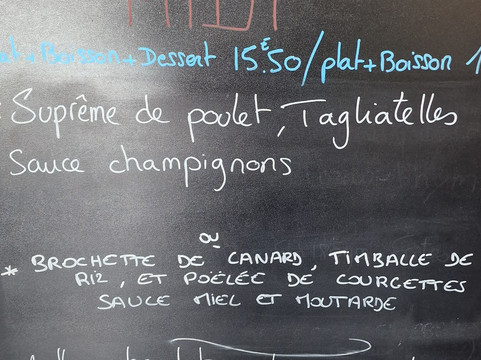 MIDI
+ Boisson + Dessert 15€50 / plat + Boisson 1
Suprême de poulet, Tagliatelles
Sauce champignons
ou
* BROCHETTE DE CANARD, TIMBALLE DE
RIZ, ET POËLÉE DE COURGETTES
SAUCE MIEL ET MOUTARDE